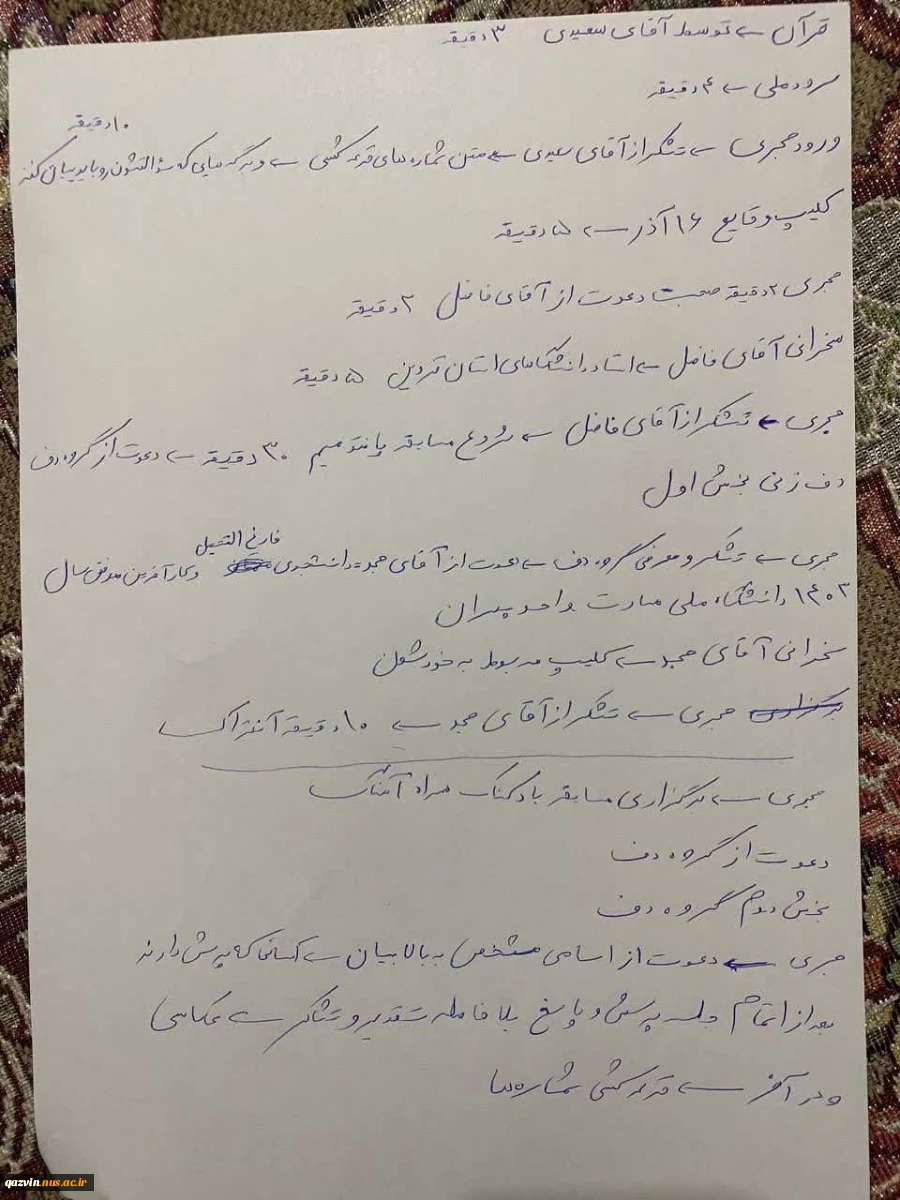 قرآن ← توسط آقای سعیدی ۳ دقیقه
سرود ملی ← ۴ دقیقه
۱۰ دقیقه
ورود مجری ← تشکر از آقای سعیدی ← متن شماره های قرعه کشی ← و برگه هایی که سؤالاتشون رو باید بیان کنند
کلیپ وقایع ۱۶ آذر ← ۵ دقیقه
مجری ۲ دقیقه صحبت دعوت از آقای فاضل ۲ دقیقه
سخرانی آقای فاضل ← استاد دانشگاهای استان قزوین ۵ دقیقه
مجری ← تشکر از آقای فاضل ← شروع مسابقه پانتومیم ۳۰ دقیقه ← دعوت از گروه دف
دف زنی بخش اول
فارغ التحصیل
مجری ← تشکر و معرفی گروه دف ← دعوت از آقای دانشجوی و کارآفرین موفق سال
۱۴۰۳ دانشگاه ملی مهارت واحد پسران
سخرانی آقای ← کلیپ مربوط به خودشون
برگزاری مجری ← تشکر از آقای ← ۱۰ دقیقه آنتراک
مجری ← برگزاری مسابقه بادکنک همراه آهنگ
دعوت از گروه دف
بخش دوم گروه دف
مجری ← دعوت از اسامی مشخص به بالا بیان ← کسانیکه پرسش دارند
بعد از اتمام جلسه پرسش و پاسخ بلافاصله تقدیر و تشکر ← عکاسی
و در آخر ← قرعه کشی شماره ها
qazvin.nus.ac.ir